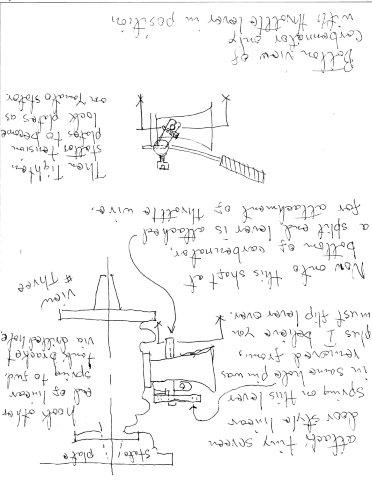 stator plate
attach tiny screen
door style linear
spring on this lever
in same hole pin was
removed from,
plus I believe you
must flip lever over.
hook other
end of linear
spring to fuel
tank bracket
via drilled hole.
View
# Three
Now onto this shaft at
bottom of carbeurator,
a split end lever is attached
for attachment of throttle wire.
Then tighten
stator tension
plates to become
lock plates as
on stator.
Bottom view of
Carbeurator only
with throttle lever in position.